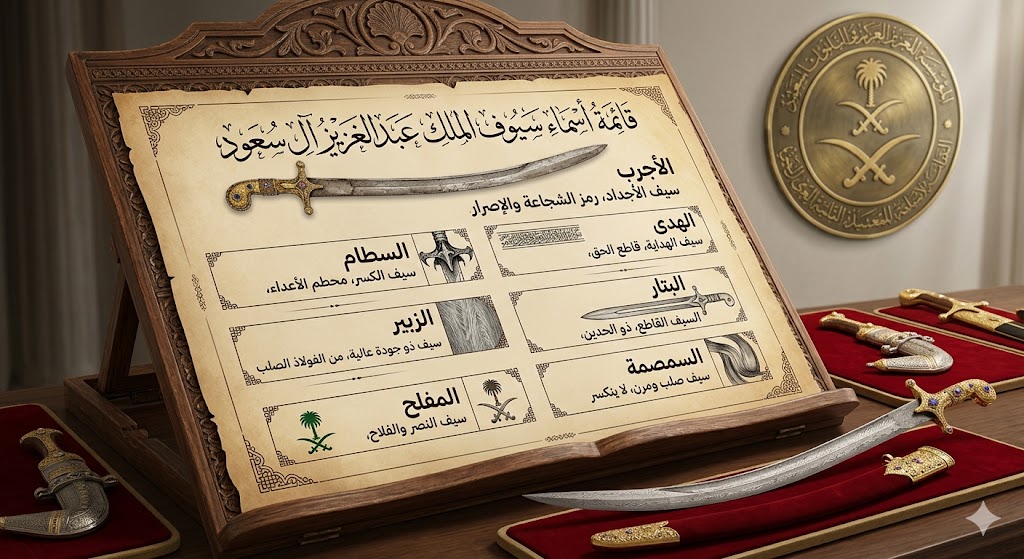 قائمة أسماء سيوف الملك عبدالعزيز آل سعود
الأجرب
سيف الأجداد، رمز الشجاعة والإصرار
الهدى
سيف الهداية، قاطع الحق،
السطام
سيف الكسر، محطم الأعداء،
البتار
السيف القاطع، ذو الحدين،
الزبير
سيف ذو جودة عالية، من الفولاذ الصلب
السمصمة
سيف صلب ومرن، لا ينكسر
المفلح
سيف النصر والفلاح،